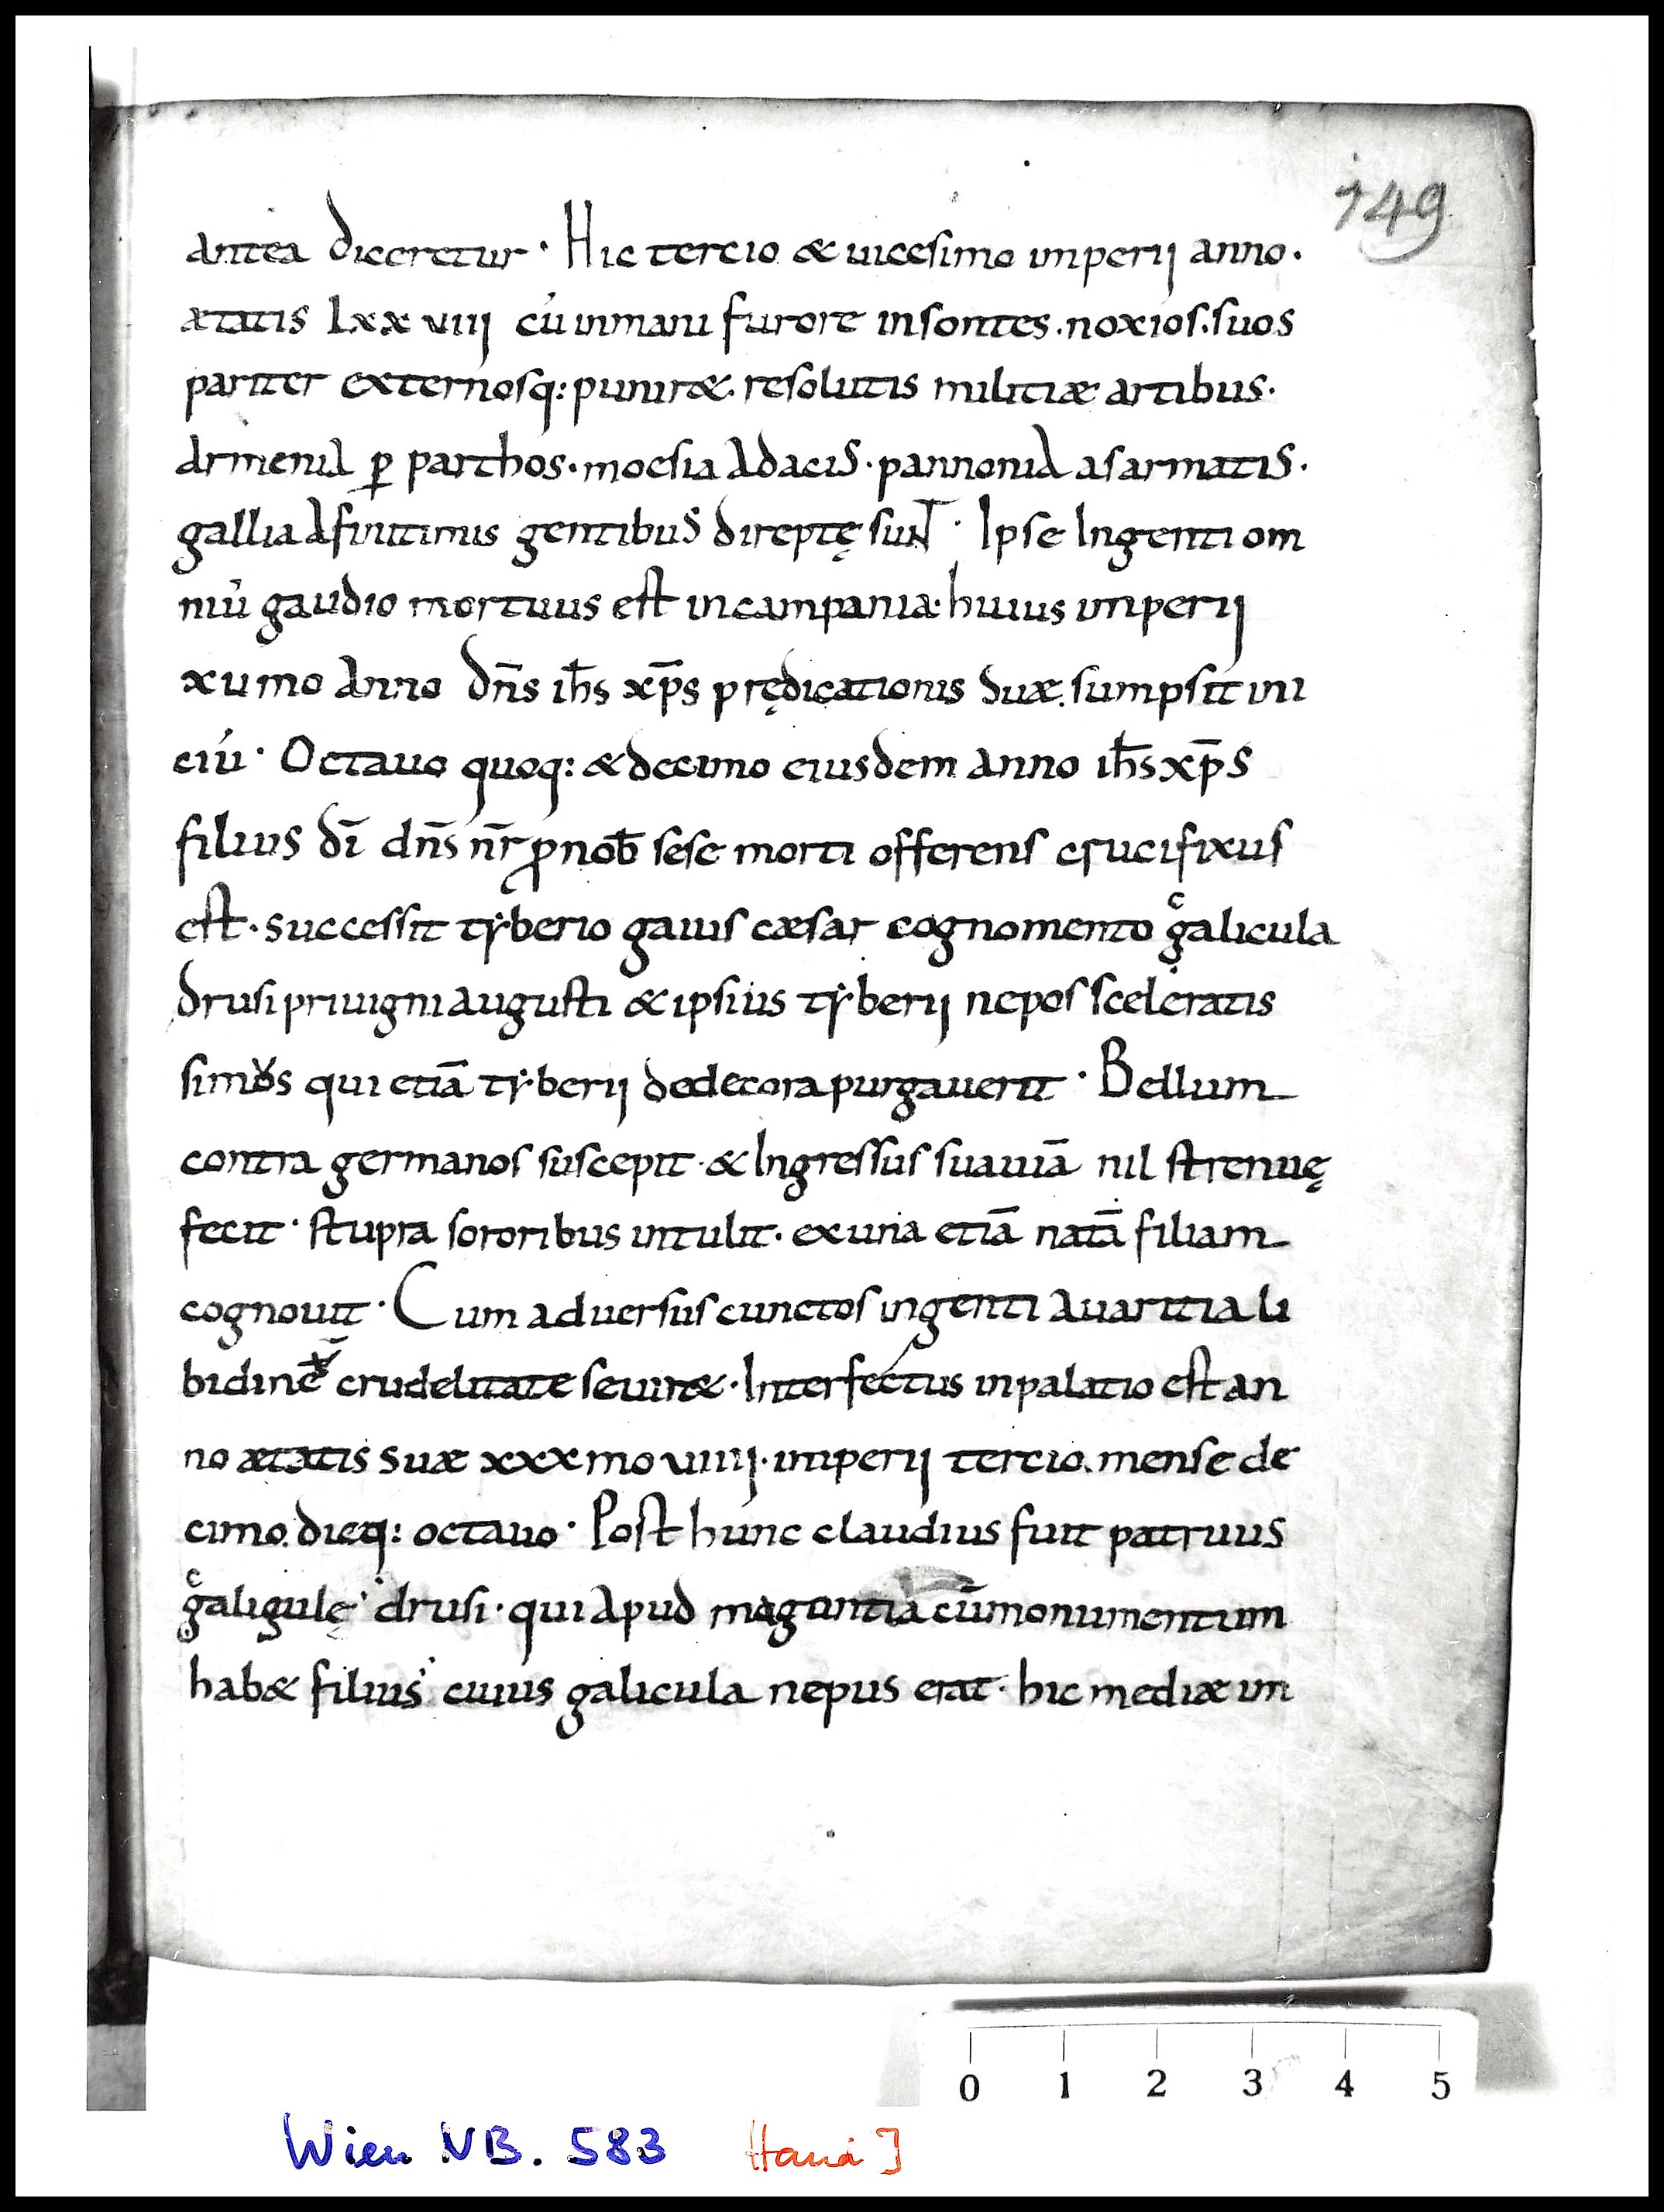 149
antea diceretur · Hic tercio & uicesimo imperij anno ·
ætatis lxxviiij cū inmani furore insontes . noxios . suos
pariter externosq: punir& . resolutis militiæ artibus ·
armenia ꝑ parthos · moesia adacis · pannonia asarmatis ·
gallia afinitimis gentibus direptę sunt · Ipse Ingenti om
niū gaudio mortuus est incampania · huius imperij
xumo anno dn̄s ih̄s xp̄s prędicationis suæ . sumpsit ini
ciū · Octauo quoq: & decimo eiusdem anno ih̄s xp̄s
filius dī dn̄s nr̄ ꝓ nob̄ sese morti offerens crucifixus
est · successit tẏberio gaius cæsar cognomento gͨalicula
drusi priuigni augusti & ipsius tẏberij nepos sceleratis
simoͮs qui etiā tẏberij dedecora purgauerit · Bellum
contra germanos suscepit · & Ingressus suauiā nil strenuę
fecit · stupra sororibus intulit · ex una etiā natā filiam
cognouit · Cum aduersus cunctos ingenti auaritia li
bidine crudelitate seuir& · Interfectus inpalatio est an
no ætatis suæ xxxmo uiiij · imperij tercio . mense de
cimo . dieq: octauo · Post hunc claudius fuit patruus
gͨaligulę drusi · qui apud magantiacū monumentum
hab& filius cuius galicula nepus erat · hic mediæ im
0 1 2 3 4 5
Wien NB. 583